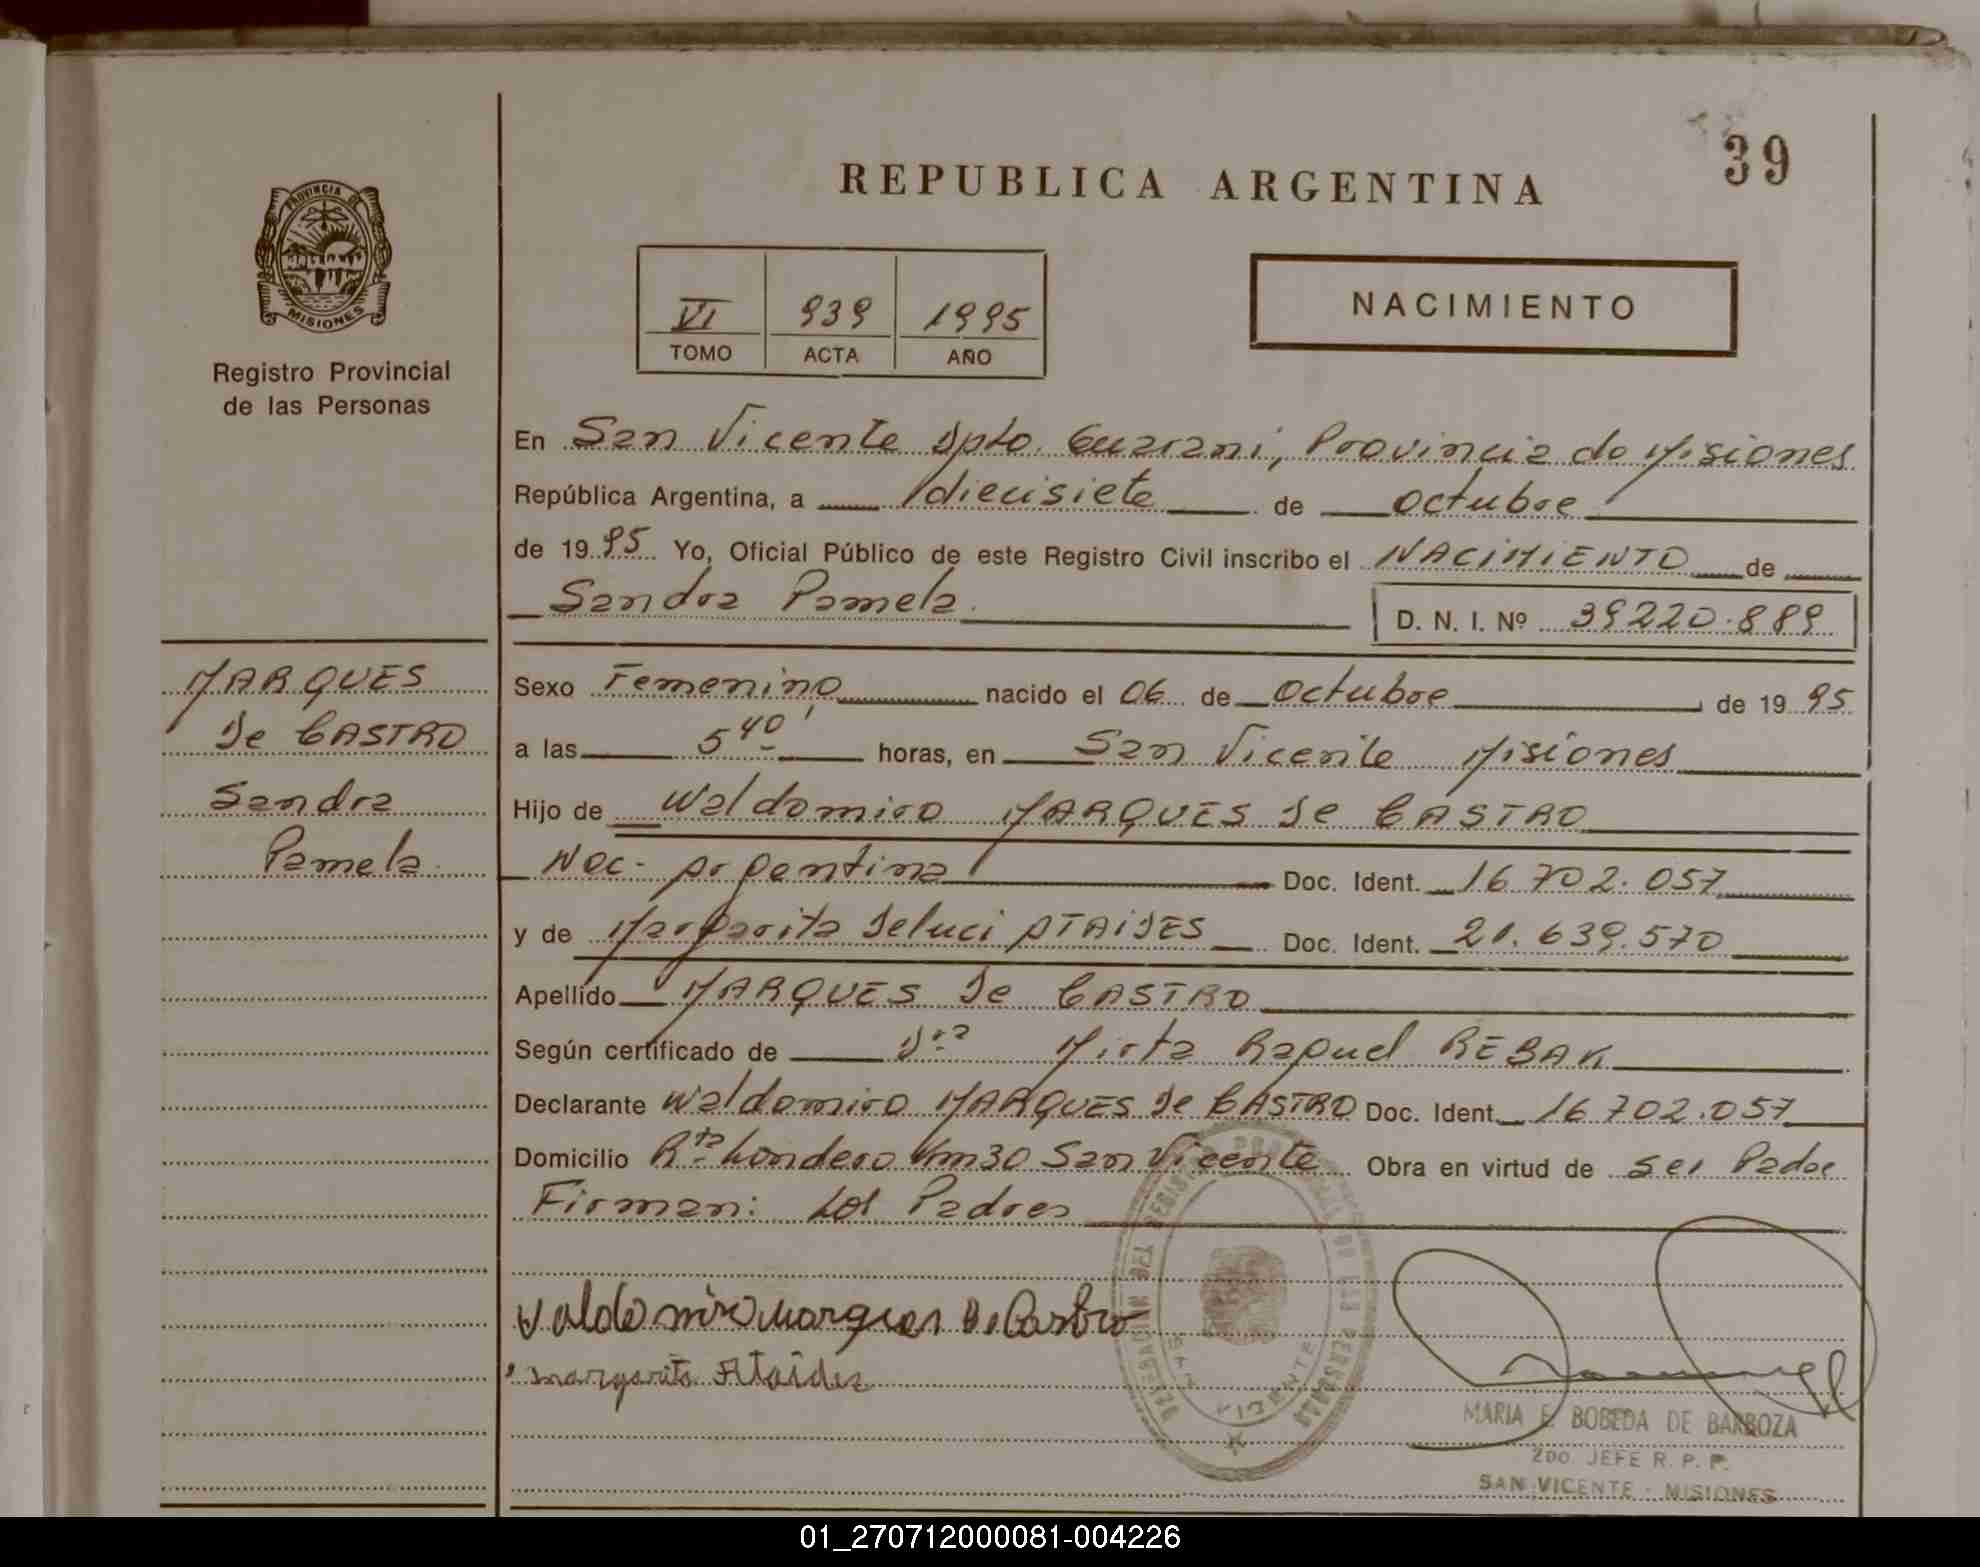 39
REPUBLICA ARGENTINA
PROVINCIA DE
MISIONES
Registro Provincial
de las Personas
VI 939 1995
TOMO ACTA AÑO
NACIMIENTO
En San Vicente Dpto. Guarani, Provincia de Misiones
República Argentina, a diecisiete de octubre
de 1995 Yo, Oficial Público de este Registro Civil inscribo el NACIMIENTO de
Sandra Pamela.
D. N. I. Nº 39220.889
MARQUES
De CASTRO
Sandra
Pamela.
Sexo Femenino nacido el 06 de octubre de 1995
a las 5 40' horas, en San Vicente Misiones
Hijo de Waldomiro MARQUES De CASTRO
Nac. Argentina Doc. Ident. 16.702.057
y de Margarita Deluci ATAIDES Doc. Ident. 21.639.570
Apellido MARQUES De CASTRO
Según certificado de Dra Mirta Raquel REBAK
Declarante Waldomiro MARQUES De CASTRO Doc. Ident. 16.702.057
Domicilio Rta Londero Km30 San Vicente Obra en virtud de ser Padre
Firman: Los Padres
Valdomiro Marques De Castro
Margarita Ataides
MARIA E. BOBEDA DE BARBOZA
2DO JEFE R. P. P.
SAN VICENTE - MISIONES
01_270712000081-004226